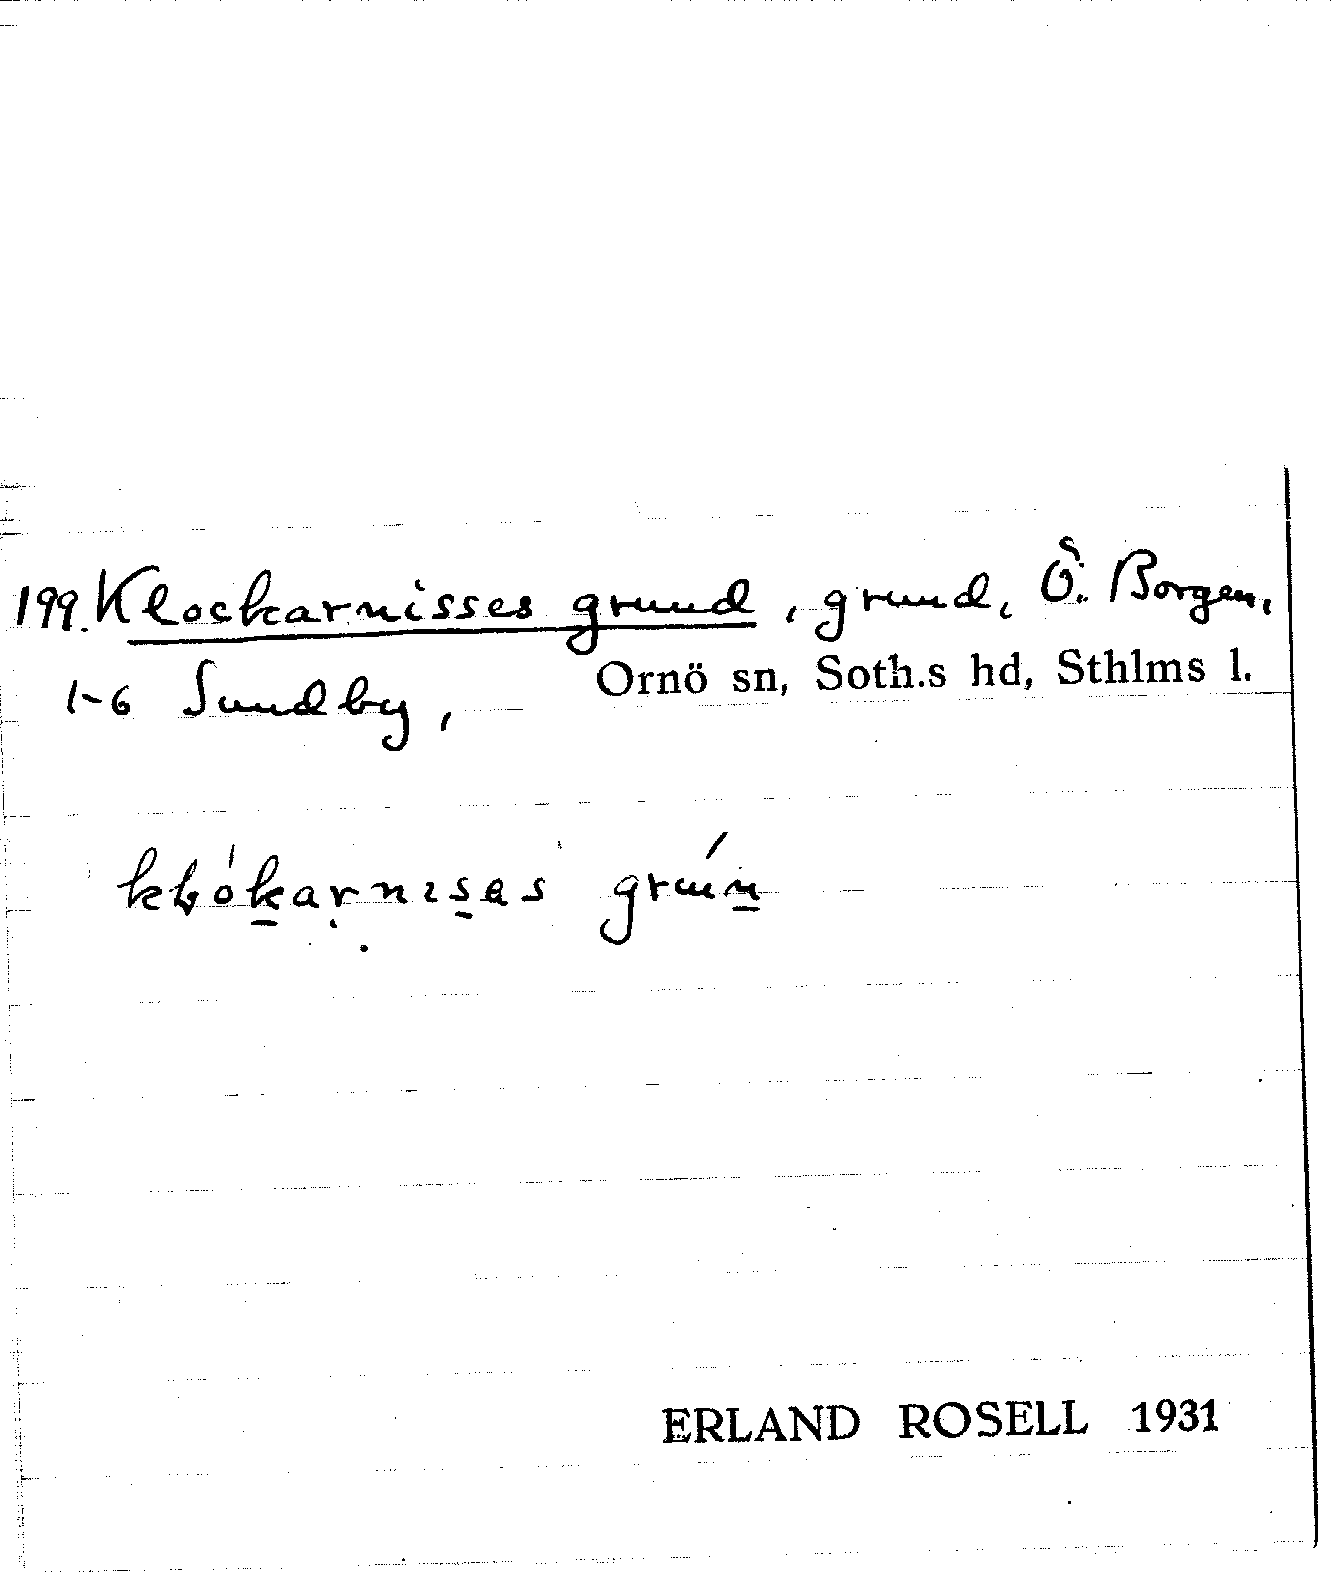 199. Klockarnisses grund, grund, Ö. Borgen,
1-6 Sundby, Ornö sn, Soth.s hd, Sthlms l.
grún
ERLAND ROSELL 1931